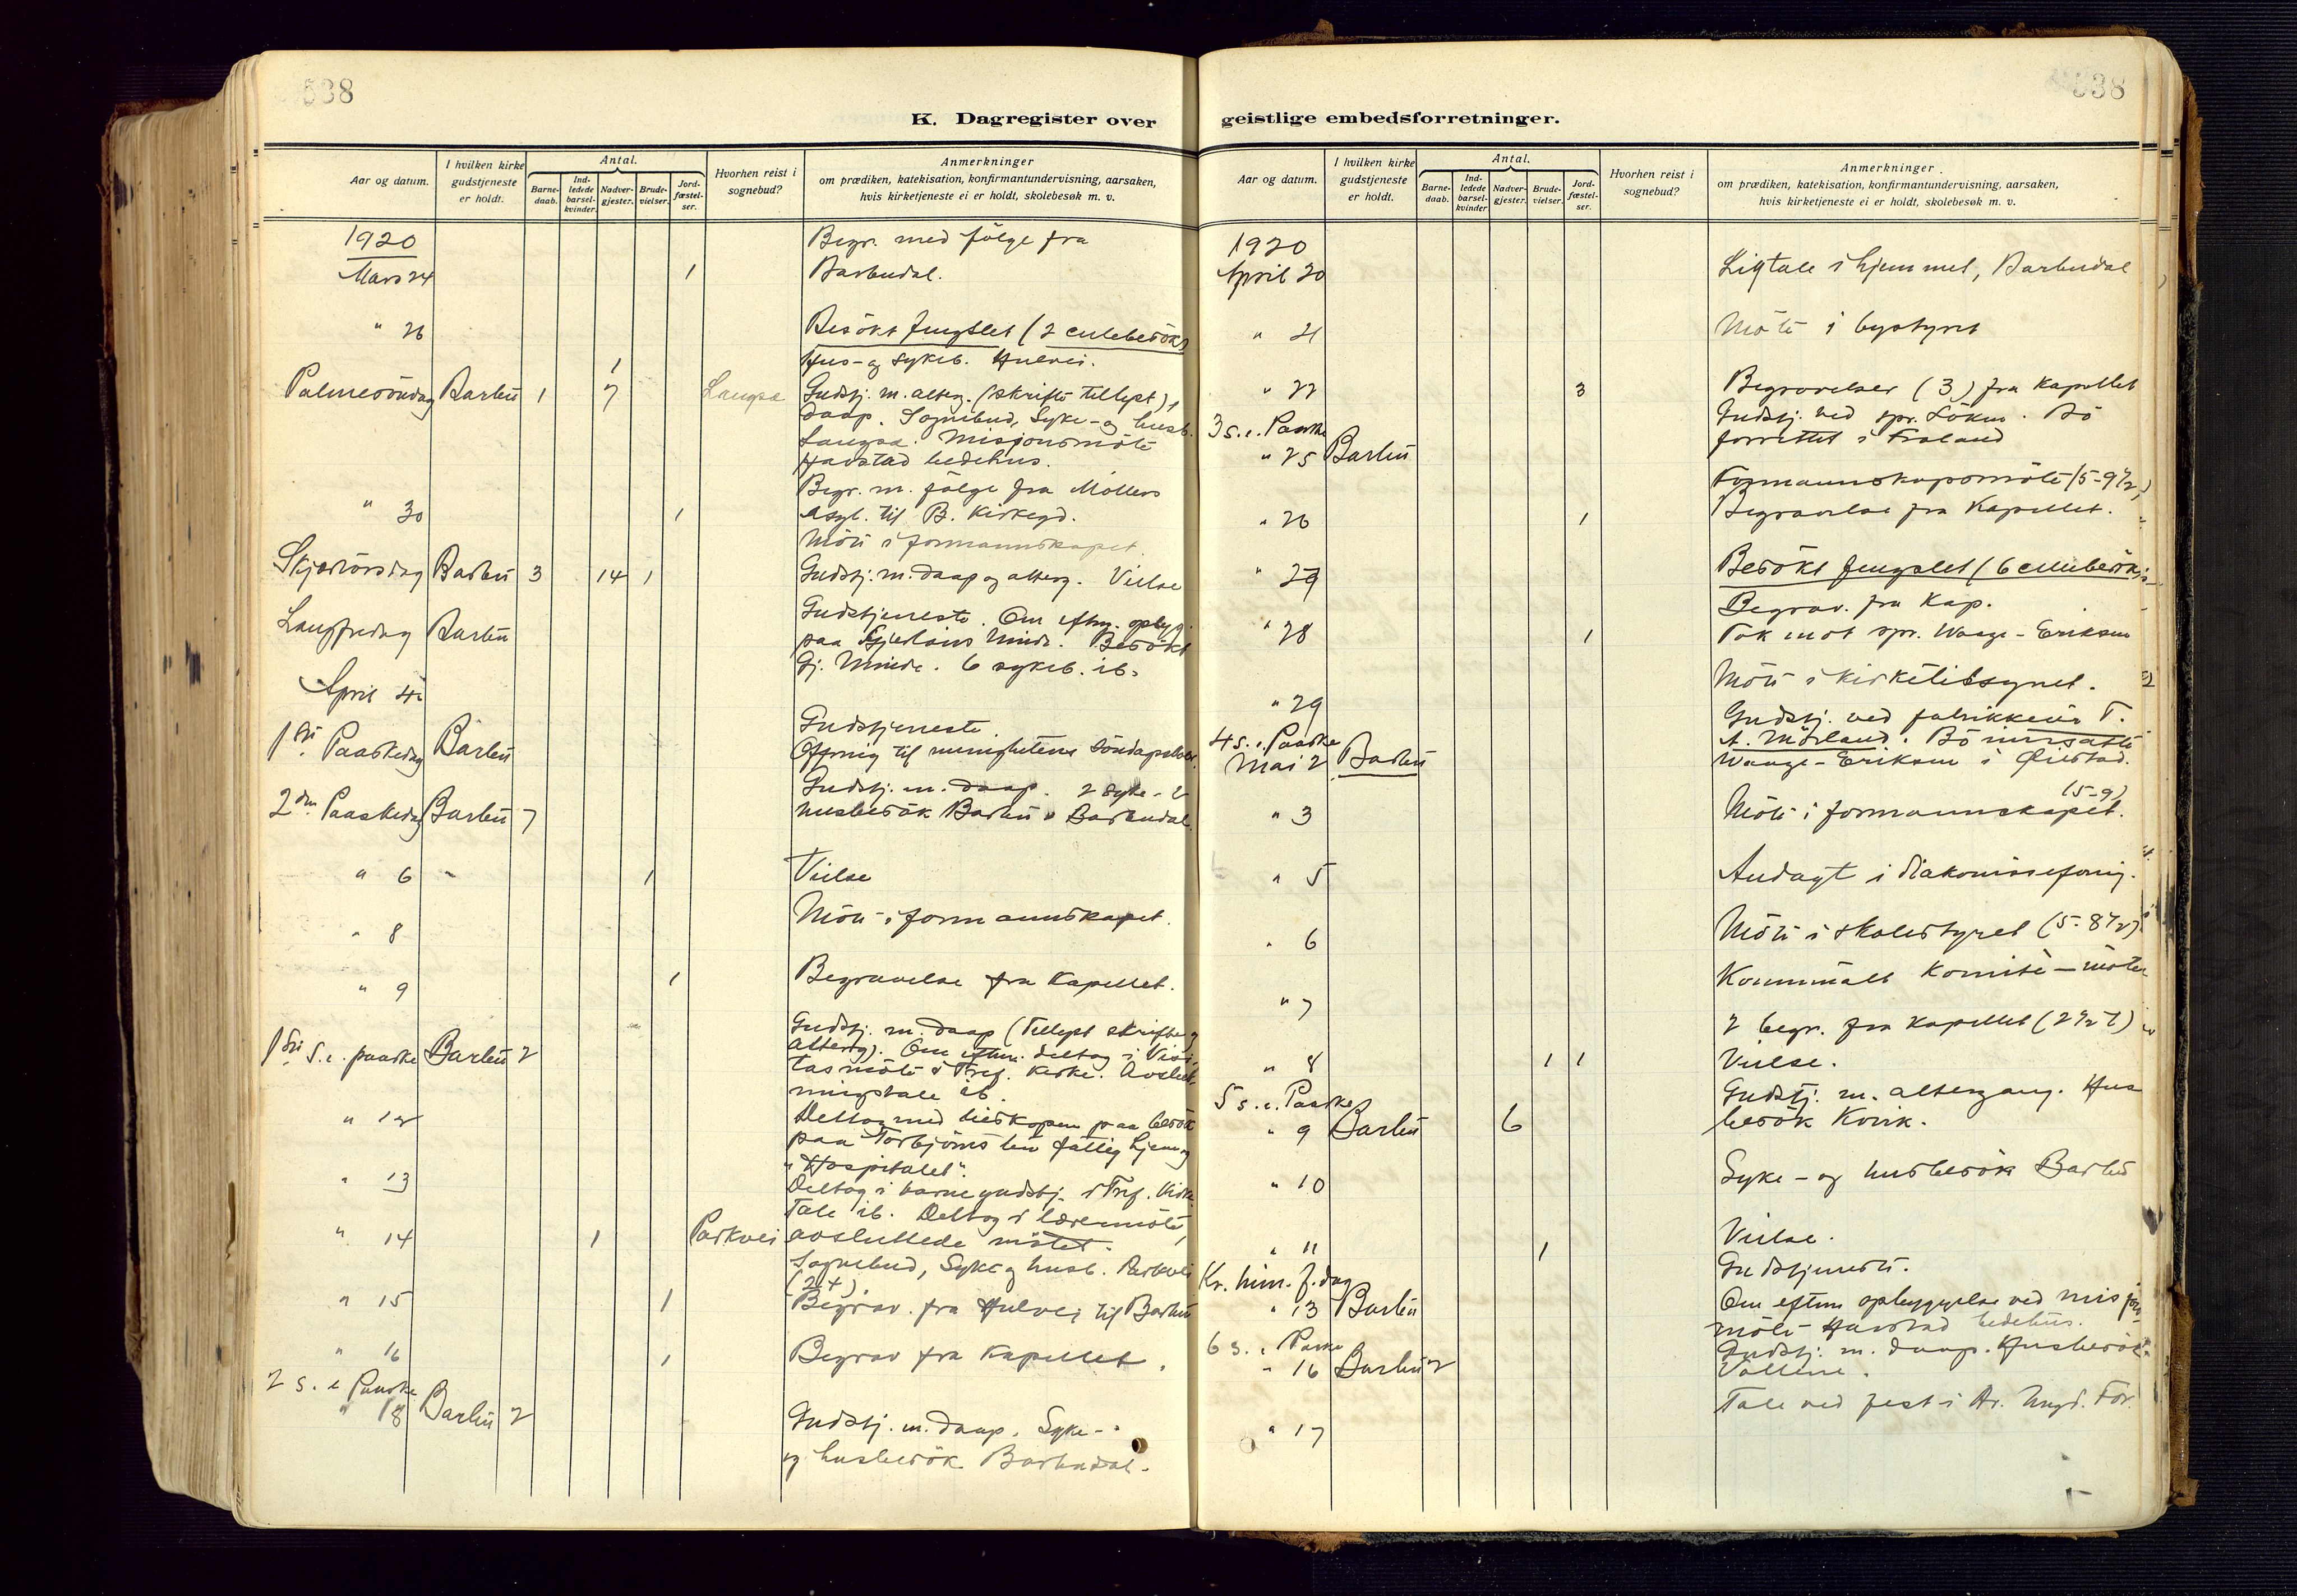 538
K. Dagregister over
Aar og datum.
I hvilken kirke gudstjeneste er holdt.
Antal.
Barne-daab.
Ind-ledede barsel-kvinder.
Nadver-gjester.
Brude-vielser.
Jord-fæstel-ser.
Hvorhen reist i sognebud?
Anmerkninger
om prædiken, katekisation, konfirmantundervisning, aarsaken,
hvis kirketjeneste ei er holdt, skolebesøk m. v.
1920
Begr. med følge fra
Mars 24 1 Barbudal.
" 26 Besökt fengslet (2 cellebesök)
1 Hus- og sykeb. Hulvei.
Palmesöndag Barbu 1 7 Langsæ Gudstj. m. alterg. (skrifte tillyst),
daap. Sognebud, Syke- og husb.
Langsæ. Misjonsmöte
Havstad bedehus.
Begr. m. følge fra Møllers
" 30 1 Asyl. til B. Kirkegd.
Möte i formannskapet.
Skjærtorsdag Barbu 3 14 1 Gudstj. m. daap og alterg. Vielse
Langfredag Barbu Gudstjeneste. Om eftm. opbygg.
paa Minde. Besökt
Gj. Minde. 6 sykeb. ib.
April 4
Gudstjeneste.
1ste Paaskedag Barbu Ofring til menighetens söndagsskole.
Gudstj. m. daap. 2 syke- 2
2den Paaskedag Barbu 7 husbesök Barbu & Barbudal.
" 6 " 1 Vielse
" 8 Möte i formannskapet.
" 9 1 Begravelse fra Kapellet.
Gudstj. m. daap (Tillyst skrifte og
1ste S. e. paaske Barbu 2 alterg). Om eftm. deltog i Visi-
tasmöte i Tref. kirke. Avslut-
ningstale ib.
" 12 Deltog med biskopen paa besök
paa Torbjörnsbu fattighjem og
" 13 "Hospitalet".
Deltog i barnegudstj. i Tref. Kirke
Tale ib. Deltog i læremöte,
" 14 1 Parkvei avsluttede mötet.
Sognebud, Syke og husb. Parkvei
(2+)
" 15 1 Begrav. fra Hulvei til Barbu
" 16 1 Begrav fra Kapellet.
2 S. e Paaske
" 18 Barbu 2 Gudstj. m. daap. Syke-
og husbesök Barbudal.
538
geistlige embedsforretninger.
Aar og datum.
I hvilken kirke gudstjeneste er holdt.
Antal.
Barne-daab.
Ind-ledede barsel-kvinder
Nadver-gjester.
Brude-vielser.
Jord-fæstel-ser.
Hvorhen reist i sognebud?
Anmerkninger.
om prædiken, katekisation, konfirmantundervisning, aarsaken,
hvis kirketjeneste ei er holdt, skolebesøk m. v.
1920
April 20 Liktale i hjemmet, Barbudal
" 21 Möte i bystyret
" 22 3 Begravelser (3) fra Kapellet
3 S. e. Paaske Gudstj. ved spr. Bö
" 25 Barbu forrettet i Froland
Formannskapsmöte (5-9½)
" 26 1 Begravelse fra Kapellet.
" 27 Besökt fengslet (6 cellebesök)
Begrav. fra Kap.
" 28 1 Tok mot spr. Waage-Eriksen
" 29 Möte i kirketilsynet.
Gudstj. ved fabrikkeier T.
4 S. e. Paaske A. Mörland. Bö innsatte
Mai 2 Barbu Waage-Eriksen i Öiestad.
" 3 Möte i formannskapet. (5-9)
" 5 Andagt i diakonisseforeng.
" 6 Möte i skolestyret (5-8½)
" 7 Kommunalt komite-möte
2 begr. fra kapellet
" 8 1 1 Vielse.
5 S. e. Paaske Gudstj. m. altergang. Hus
" 9 Barbu 6 besök
" 10 Syke- og husbesök Barbu
" 11 1 Vielse.
Kr. him. f. dag Gudstjeneste.
" 13 Barbu Om eftm opbyggelse ved misjons
möte Havstad bedehus.
6 S. e Paaske Gudstj. m. daap. Husbesök
" 16 Barbu 2 Vollene.
" 17 Tale ved fest i Ar. Ungd. For.